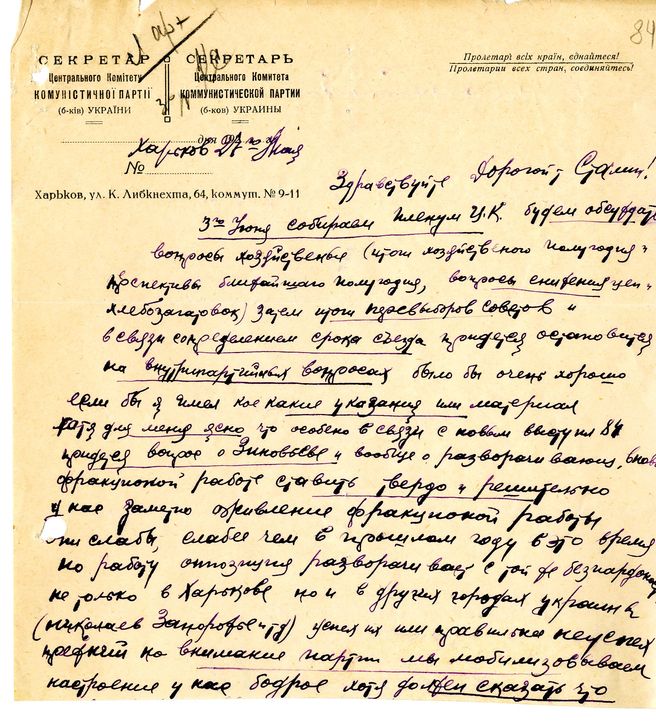 84
1 арх
СЕКРЕТАР СЕКРЕТАРЬ
Центрального Комітету Центрального Комитета
КОМУНІСТИЧНОЇ ПАРТІЇ КОММУНИСТИЧЕСКОЙ ПАРТИИ
(б-ків) УКРАЇНИ (б-ков) УКРАИНЫ
Пролетарі всіх країн, єднайтеся!
Пролетарии всех стран, соединяйтесь!
Харьков 27го Мая
№
Харьков, ул. К. Либкнехта, 64, коммут. № 9-11
Здравствуйте Дорогой т Сталин!
3го Июня собираем пленум Ц.К. будем обсуждать
вопросы хозяйственые (итоги хозяйственого полугодия
перспективы ближайшаго полугодия, вопросы снижения цен
хлебозаготовок) затем итоги перевыборов советов и
в связи сопределением срока съезда придется остановится
на внутрипартийных вопросах было бы очень хорошо
если бы я имел кое какие указания или материал
хотя для меня ясно что особено в связи с новым выступл 84
придется вопрос о Зиновьеве и вообще о разворачивающ
фракционой работе ставить твердо и решительно
У нас заметно оживление фракционой работы
они слабы, слабее чем в прошлом году в это время
но работу оппозиция разворачивает с той же
не только в Харькове но и в других городах украины
(николаев Запорожье итд) успех их или правильнее неуспех
прежний но внимание партии мы мобилизовываем
настроение у нас бодрое хотя должен сказать что